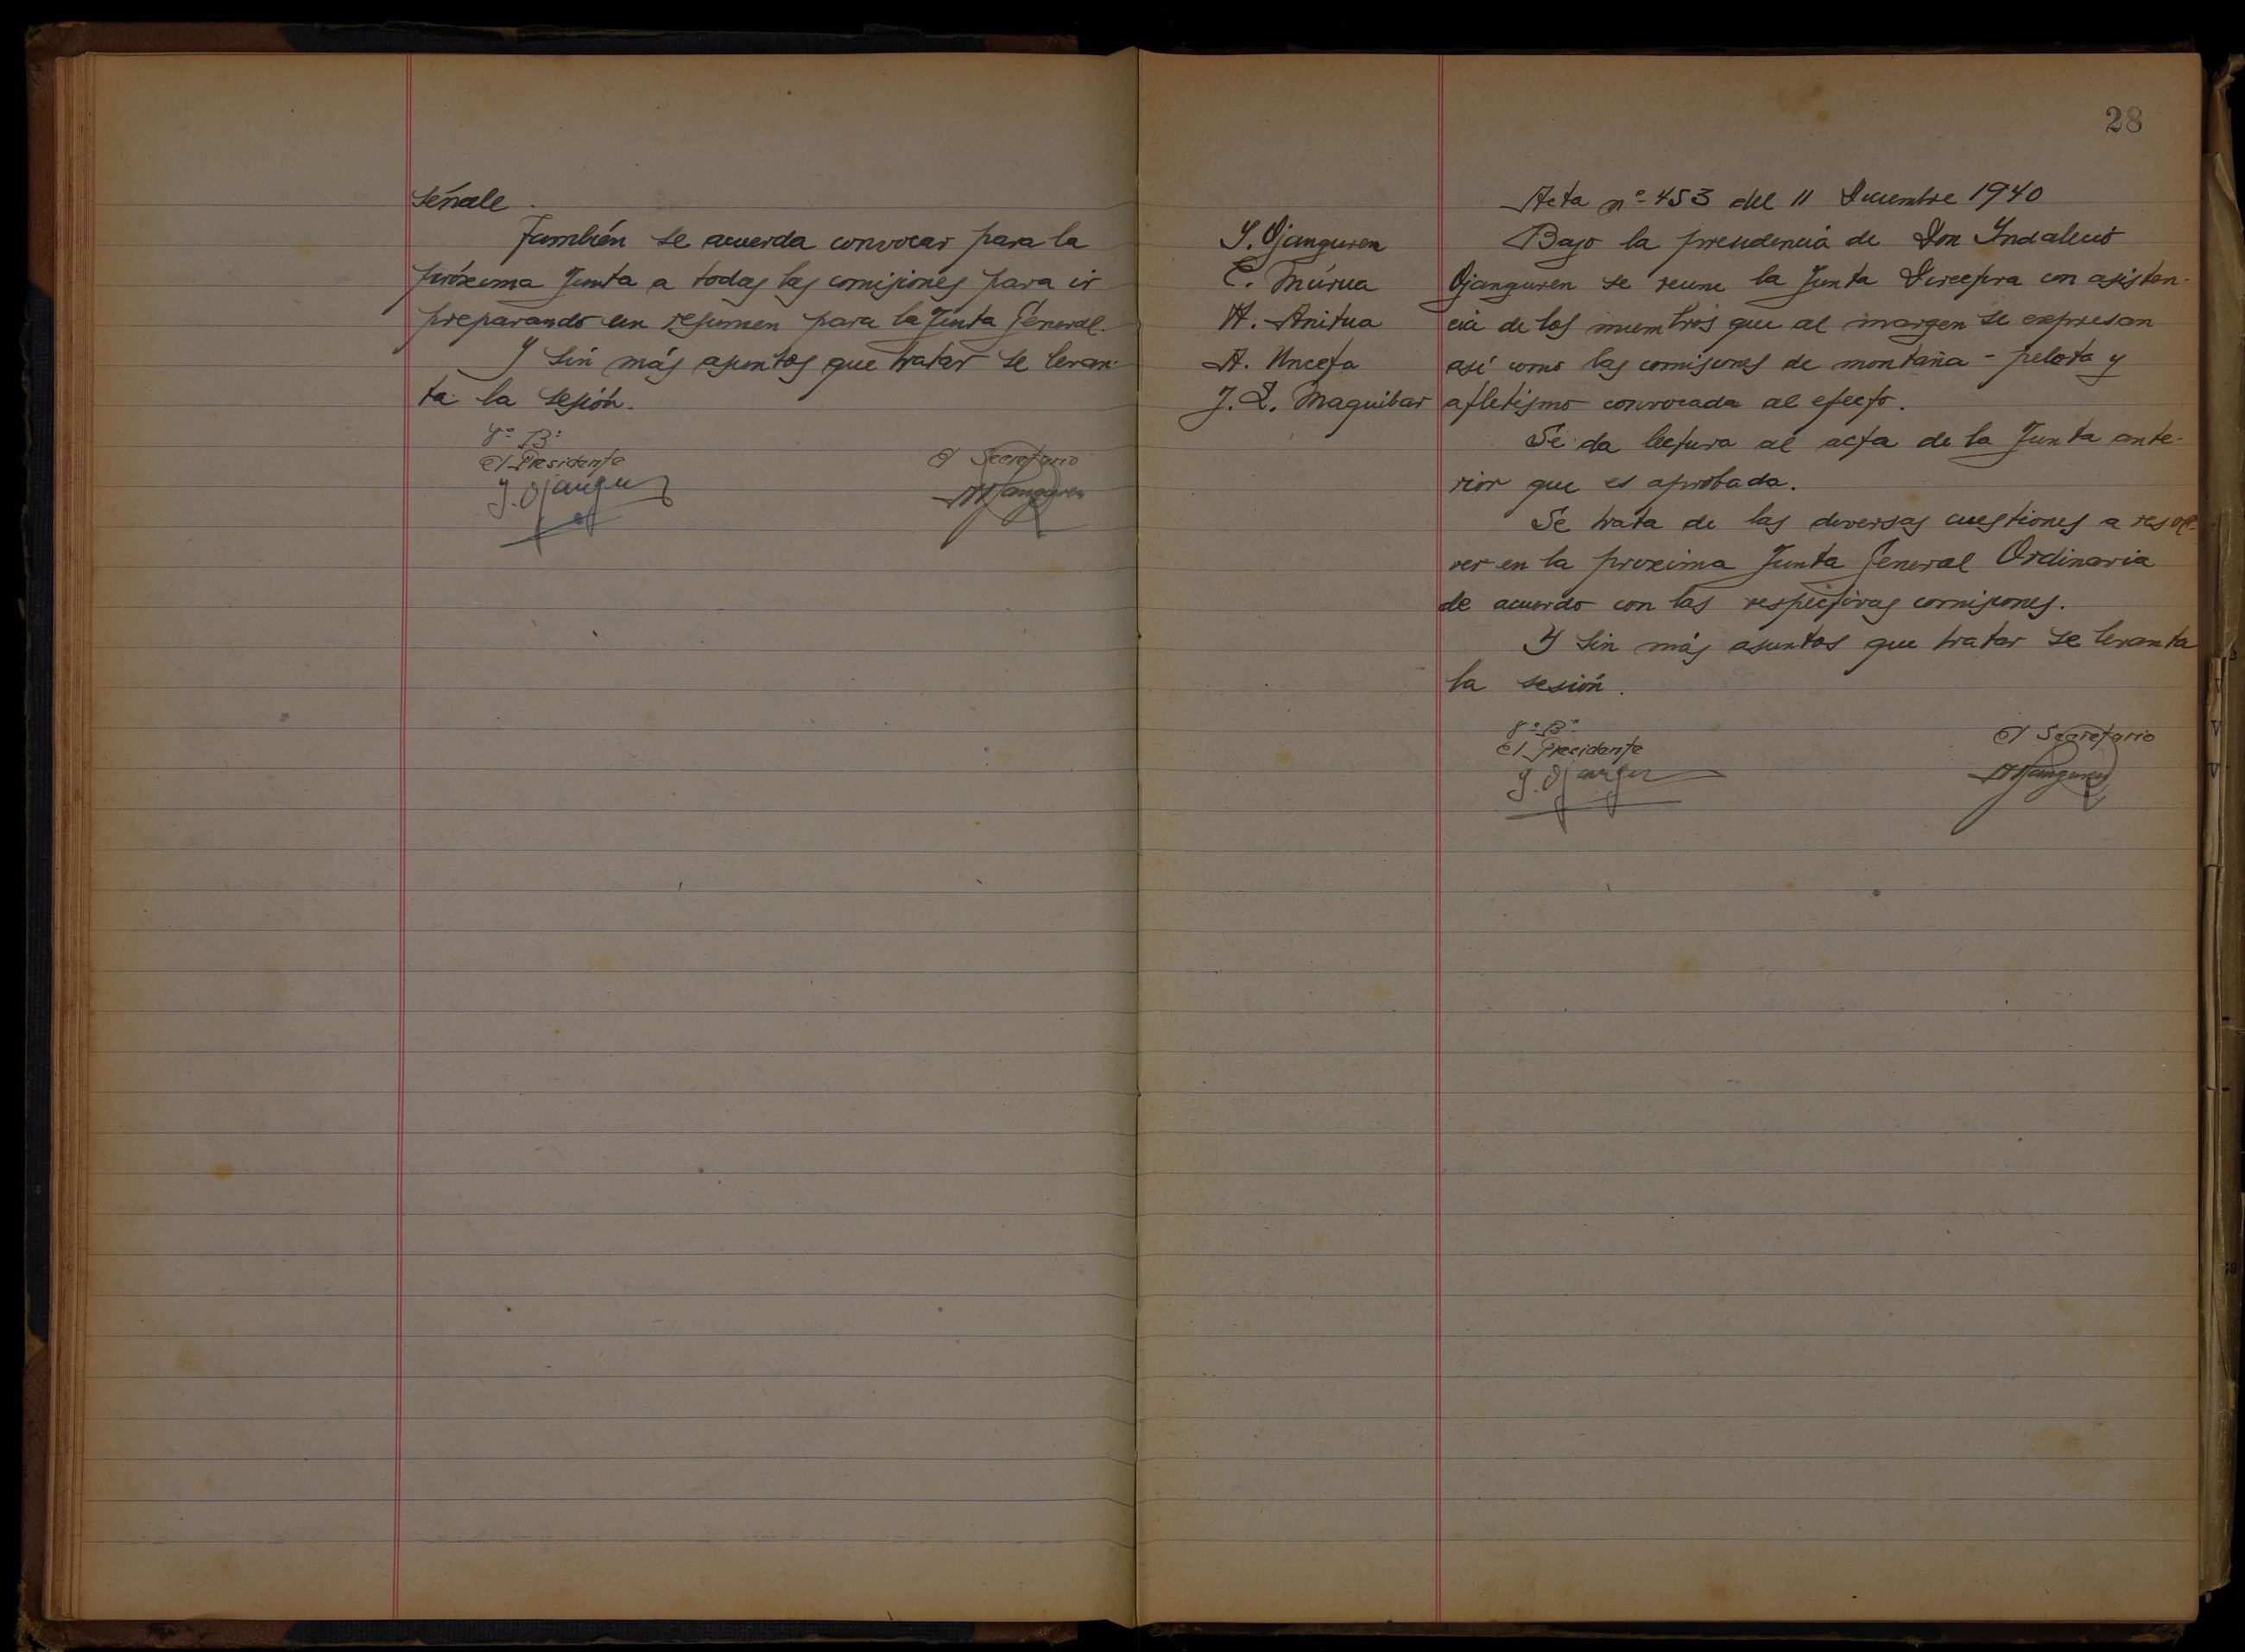 señale.
También se acuerda convocar para la
próxima Junta a todas las comisiones para ir
preparando un resumen para la Junta General.
Y sin más asuntos que tratar se levan-
ta la sesión.
Vº Bº
El Presidente
El Secretario
I. Ojangu
28
Acta nº 453 del 11 Diciembre 1940
S. Ojanguren
C. Múrua
H. Anitua
A. Unceta
J. L. Maguibar
Bajo la presidencia de Don Yndalecio
Ojanguren se reune la Junta Directiva con asisten-
cia de los miembros que al margen se expresan
así como las comisiones de montaña - pelota y
atletismo convocada al efecto.
Se da lectura al acta de la Junta ante-
rior que es aprobada.
Se trata de las diversas cuestiones a resol-
ver en la proxima Junta General Ordinaria
de acuerdo con las respectivas comisiones.
Y sin más asuntos que tratar se levanta
la sesión.
Vº Bº
El Presidente
El Secretario
I. Ojangur